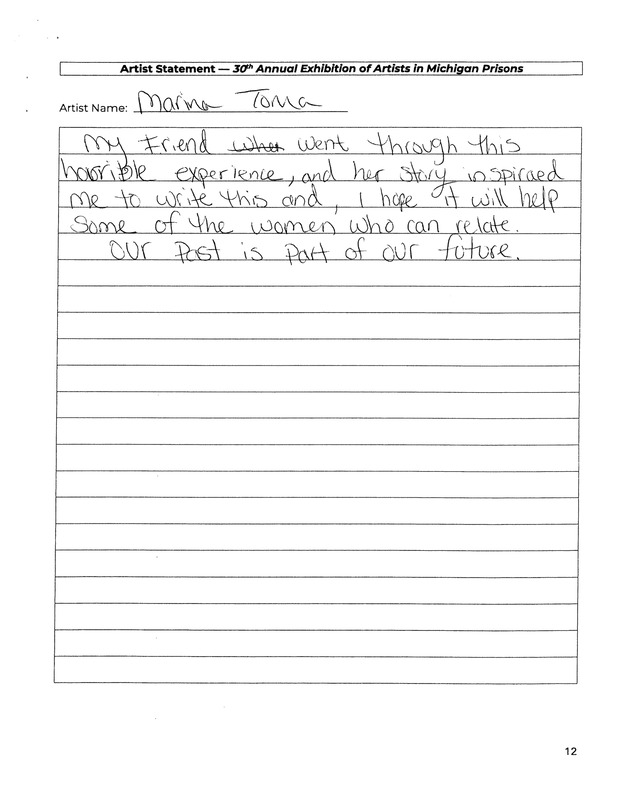 Artist Statement — 30th Annual Exhibition of Artists in Michigan Prisons
Artist Name: Marina Toma
My Friend went through this
horrible experience, and her story inspiraed
me to write this and, I hope it will help
some of the women who can relate.
OUR Past is Part of our future.
12